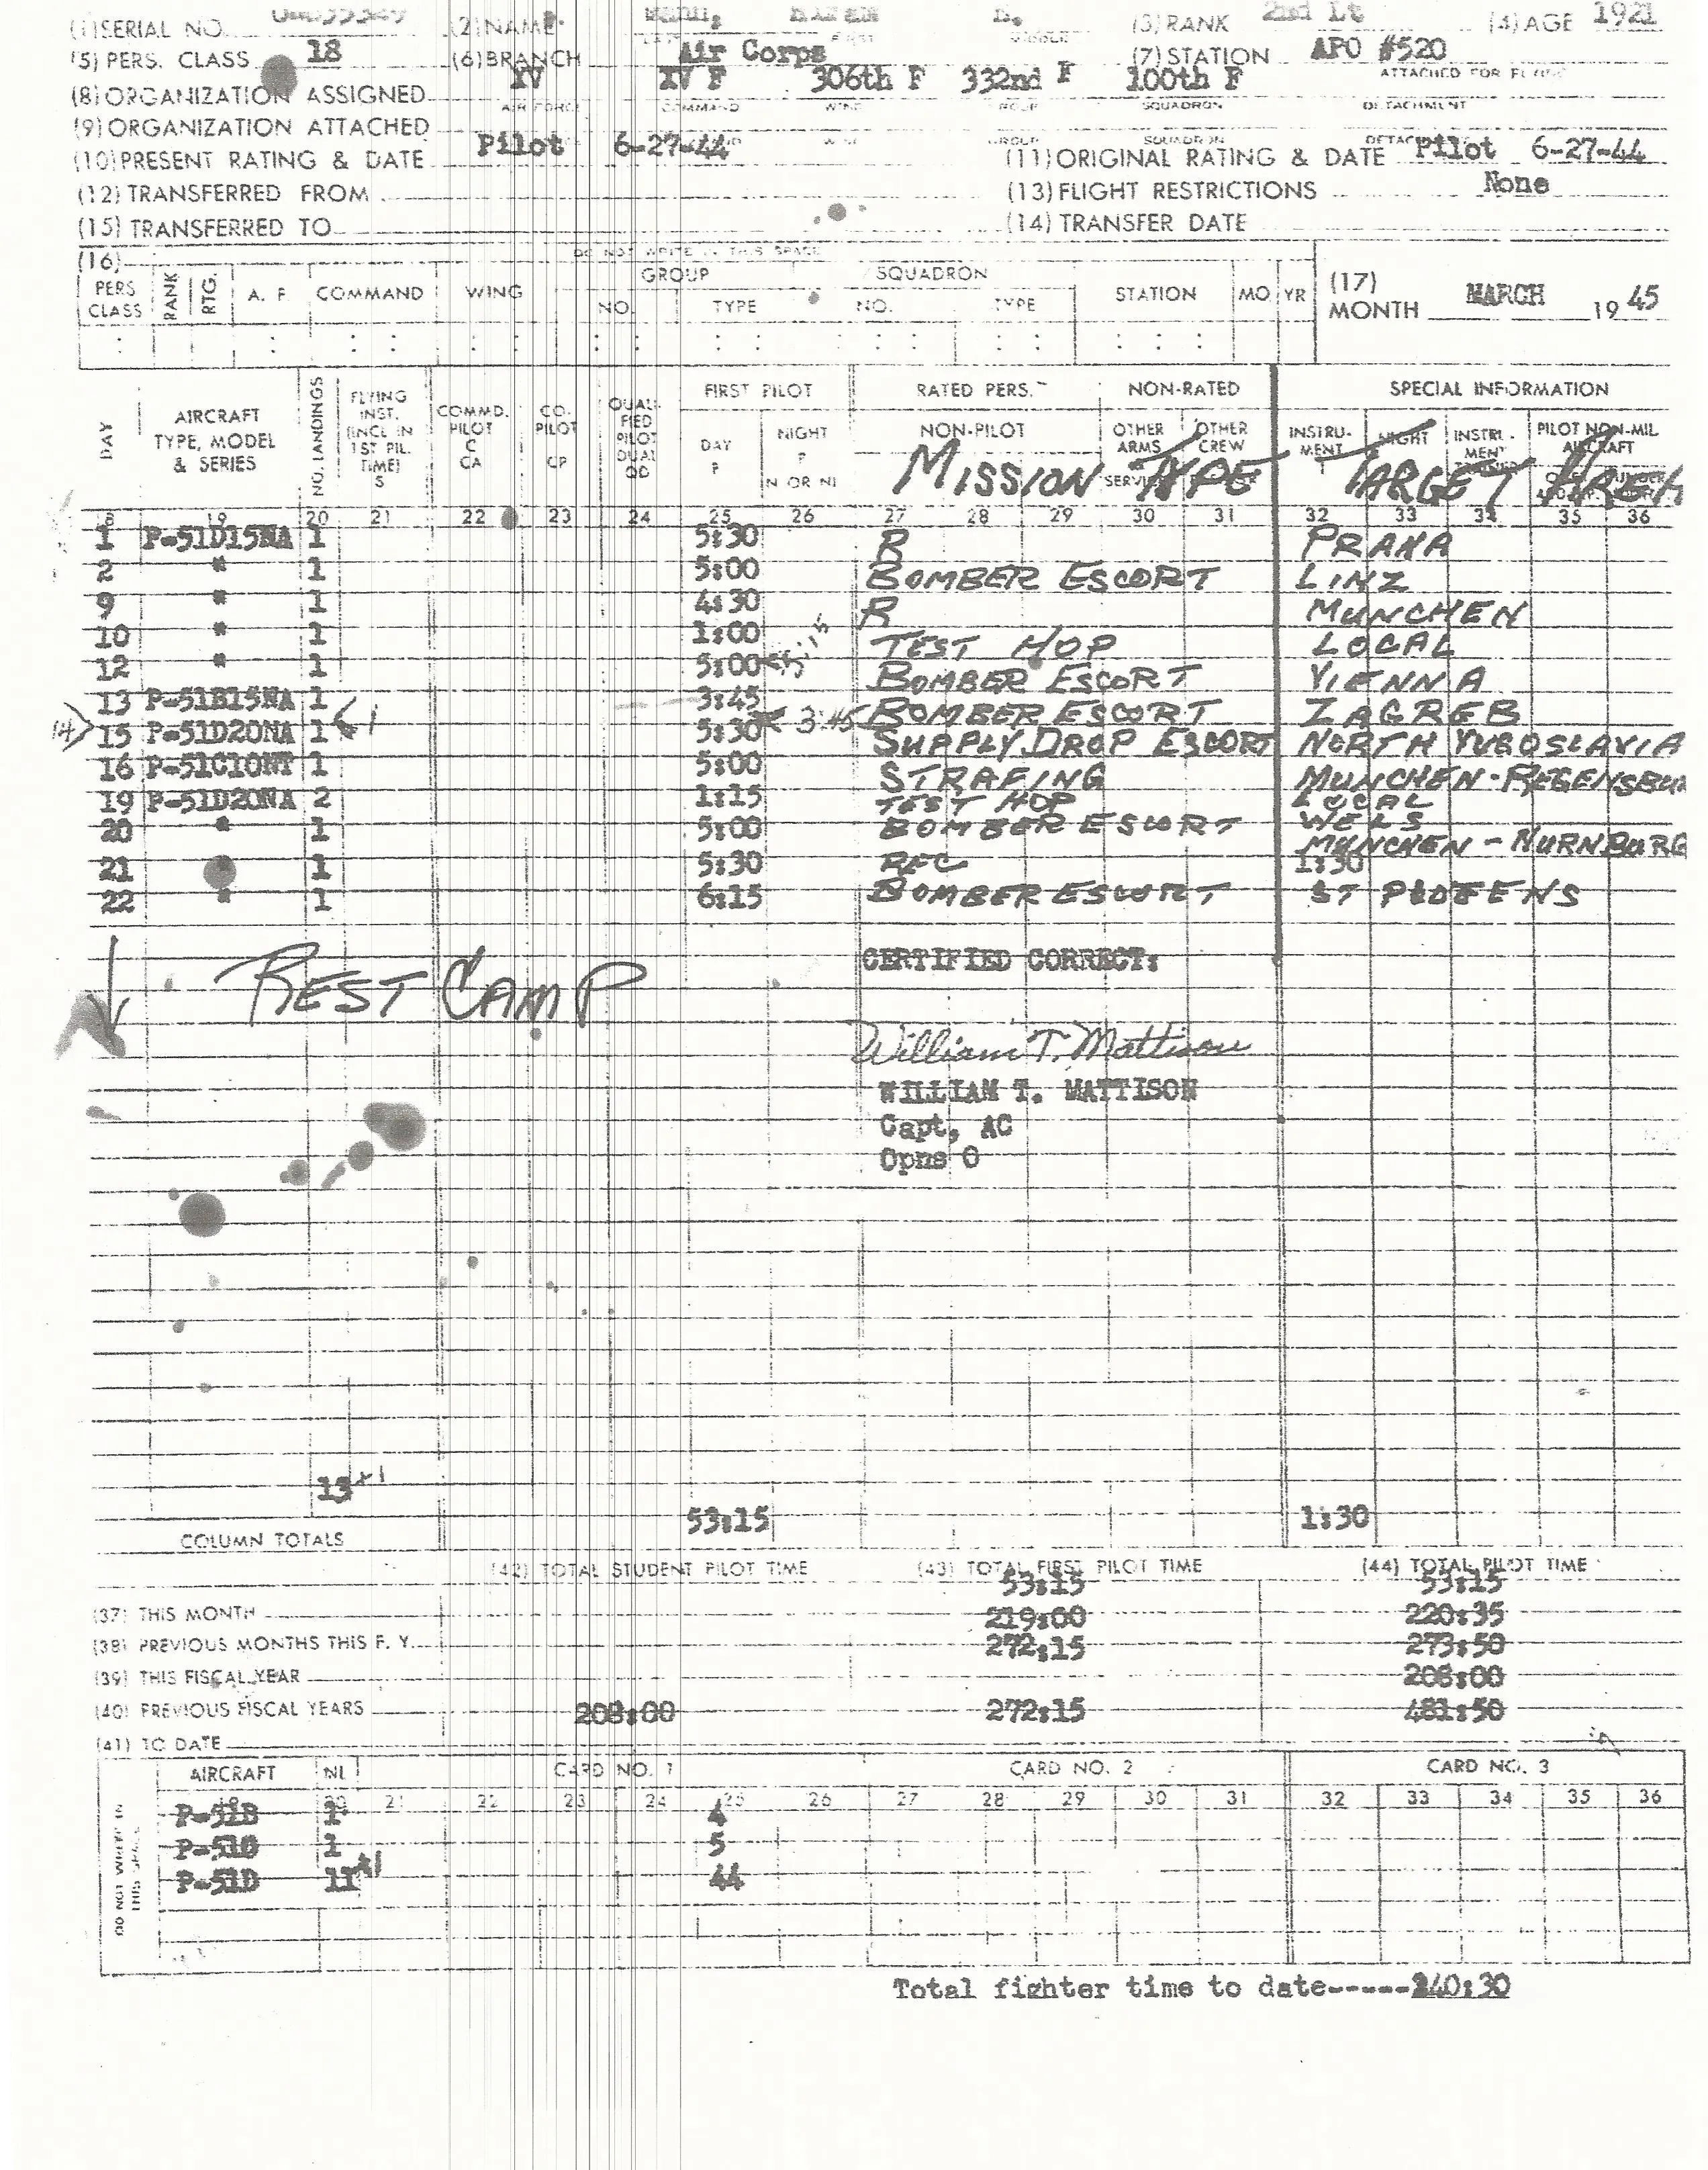 (1) SERIAL NO. (2) NAME (3) RANK 2nd Lt (4) AGE 1921
LAST FIRST MIDDLE
(5) PERS. CLASS 18 (6) BRANCH Air Corps (7) STATION APO #520
XV XV F 306th F 332nd F 100th F ATTACHED FOR FLYING
(8) ORGANIZATION ASSIGNED
AIR FORCE COMMAND WING GROUP SQUADRON DETACHMENT
(9) ORGANIZATION ATTACHED
Pilot 6-27-44 WING GROUP SQUADRON Pilot 6-27-44
(10) PRESENT RATING & DATE (11) ORIGINAL RATING & DATE
(12) TRANSFERRED FROM (13) FLIGHT RESTRICTIONS None
(15) TRANSFERRED TO (14) TRANSFER DATE
DO NOT WRITE IN THIS SPACE
(16) GROUP SQUADRON
PERS CLASS RANK RTG. A. F. COMMAND WING NO. TYPE NO. TYPE STATION MO YR (17) MONTH MARCH 19 45
FIRST PILOT RATED PERS. NON-RATED SPECIAL INFORMATION
DAY AIRCRAFT TYPE, MODEL & SERIES NO. LANDINGS FLYING INST. (INCL IN 1ST PIL. TIME) S COMMD. PILOT C CA CO-PILOT CP QUALIFIED PILOT DUAL QD DAY P NIGHT P N OR NI NON-PILOT OTHER ARMS SERVICES OTHER CREW INSTRUMENT I NIGHT INSTRUMENT PILOT NON-MIL AIRCRAFT
MISSION TYPE TARGET AREA
18 19 20 21 22 23 24 25 26 27 28 29 30 31 32 33 34 35 36
1 P-51D15NA 1 5:30 R PRAHA
2 " 1 5:00 BOMBER ESCORT LINZ
9 " 1 4:30 R MUNCHEN
10 " 1 1:00 TEST HOP LOCAL
12 " 1 5:00 < 5:15 BOMBER ESCORT VIENNA
13 P-51B15NA 1 3:45 BOMBER ESCORT ZAGREB
14> 15 P-51D20NA 1 <1 5:30 < 3:45 SUPPLY DROP ESCORT NORTH YUGOSLAVIA
16 P-51C10NT 1 5:00 STRAFING MUNCHEN-REGENSBU
19 P-51D20NA 2 1:15 TEST HOP LOCAL
20 " 1 5:00 BOMBER ESCORT WELS
MUNCHEN - NURNBURG
21 " 1 5:30 REC 1:30
22 " 1 6:15 BOMBER ESCORT
CERTIFIED CORRECT:
REST CAMP
William T. Mattison
WILLIAM T. MATTISON
Capt, AC
Opns O
13 +1
53:15 1:30
COLUMN TOTALS
(42) TOTAL STUDENT PILOT TIME (43) TOTAL FIRST PILOT TIME (44) TOTAL PILOT TIME
53:15 53:15
(37) THIS MONTH 219:00 220:35
(38) PREVIOUS MONTHS THIS F. Y. 272:15 273:50
(39) THIS FISCAL YEAR 208:00
(40) PREVIOUS FISCAL YEARS 208:00 272:15 481:50
(41) TO DATE
AIRCRAFT NL CARD NO. 1 CARD NO. 2 CARD NO. 3
19 20 21 22 23 24 25 26 27 28 29 30 31 32 33 34 35 36
P-51B 1 4
P-51C 1 5
P-51D 11 +1 44
DO NOT WRITE IN THIS SPACE
Total fighter time to date-----240:30